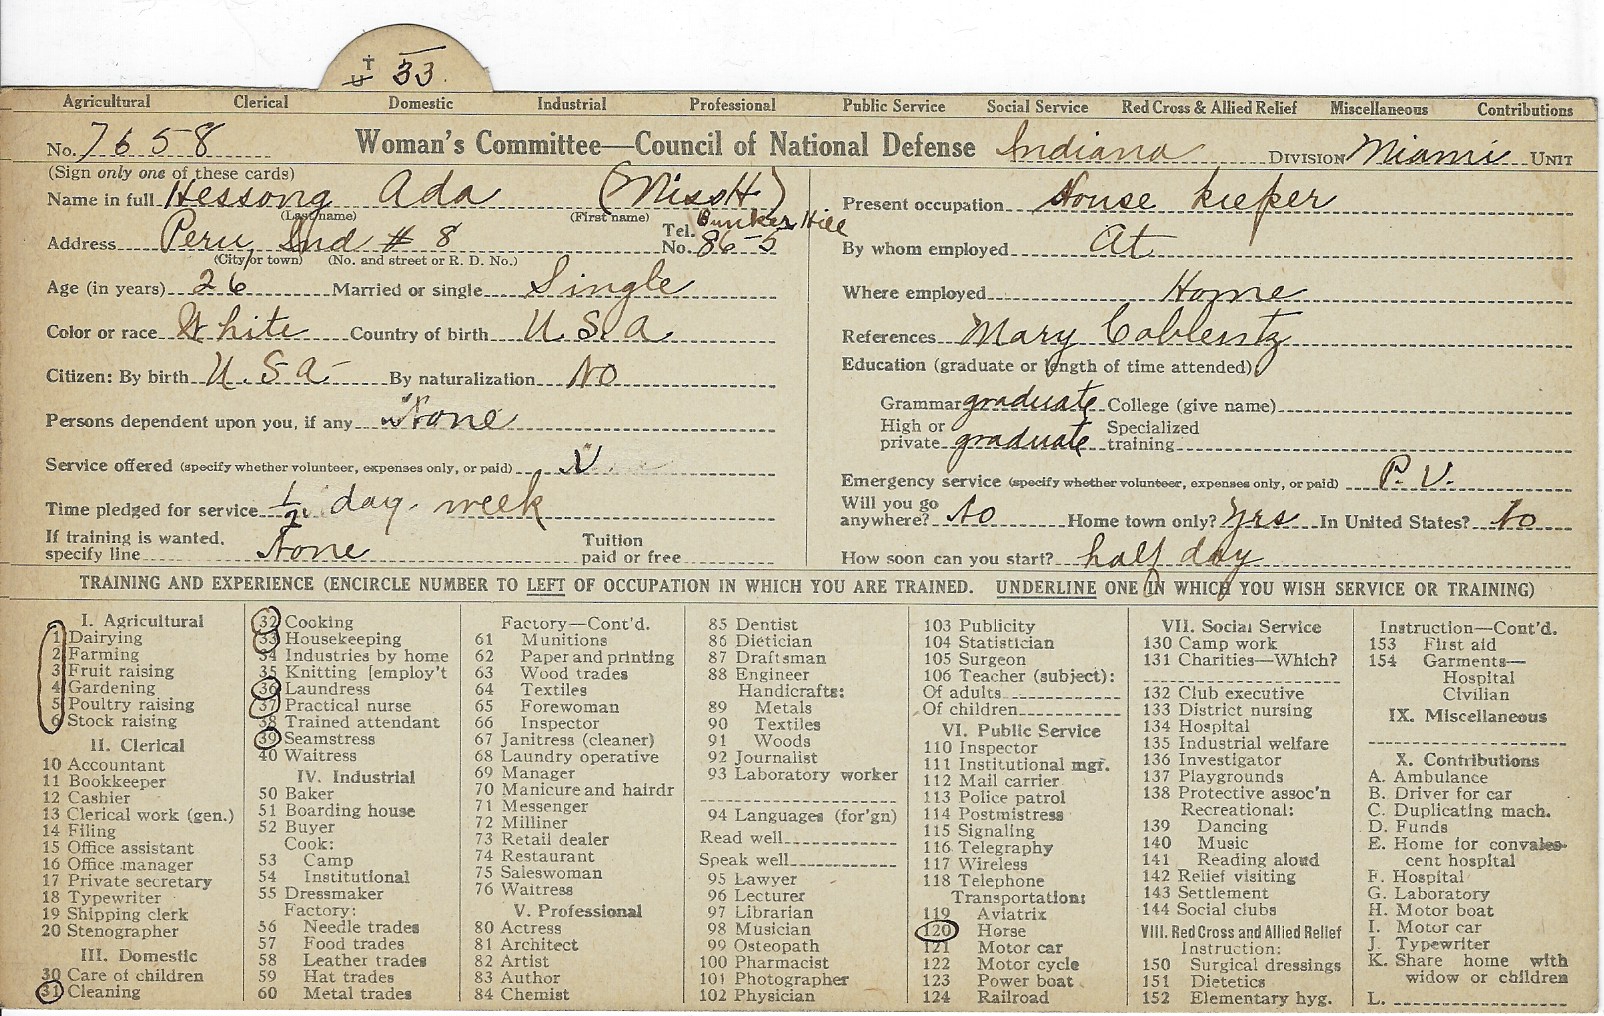 T
U 33.
Agricultural Clerical Domestic Industrial Professional Public Service Social Service Red Cross & Allied Relief Miscellaneous Contributions
No. 7658 Woman's Committee—Council of National Defense Indiana DIVISION Miami UNIT
(Sign only one of these cards)
Name in full Hessong Ada (Miss H)
(Last name) (First name)
Address Peru Ind # 8 Tel. No. Bunker Hill 86-5
(City or town) (No. and street or R. D. No.)
Age (in years) 26 Married or single Single
Color or race White Country of birth U.S.A
Citizen: By birth U.S.A By naturalization No
Persons dependent upon you, if any None
Service offered (specify whether volunteer, expenses only, or paid) V
Time pledged for service 1/2 day. week
If training is wanted, specify line None Tuition paid or free
Present occupation House kieper
By whom employed At
Where employed Home
References Mary Coblentz
Education (graduate or length of time attended)
Grammar graduate College (give name)
High or private graduate Specialized training
Emergency service (specify whether volunteer, expenses only, or paid) P. V.
Will you go anywhere? No Home town only? Yes In United States? No
How soon can you start? half day
TRAINING AND EXPERIENCE (ENCIRCLE NUMBER TO LEFT OF OCCUPATION IN WHICH YOU ARE TRAINED. UNDERLINE ONE IN WHICH YOU WISH SERVICE OR TRAINING)
I. Agricultural
1 Dairying
2 Farming
3 Fruit raising
4 Gardening
5 Poultry raising
6 Stock raising
II. Clerical
10 Accountant
11 Bookkeeper
12 Cashier
13 Clerical work (gen.)
14 Filing
15 Office assistant
16 Office manager
17 Private secretary
18 Typewriter
19 Shipping clerk
20 Stenographer
III. Domestic
30 Care of children
31 Cleaning
32 Cooking
33 Housekeeping
34 Industries by home
35 Knitting [employ't
36 Laundress
37 Practical nurse
38 Trained attendant
39 Seamstress
40 Waitress
IV. Industrial
50 Baker
51 Boarding house
52 Buyer
Cook:
53 Camp
54 Institutional
55 Dressmaker
Factory:
56 Needle trades
57 Food trades
58 Leather trades
59 Hat trades
60 Metal trades
Factory—Cont'd.
61 Munitions
62 Paper and printing
63 Wood trades
64 Textiles
65 Forewoman
66 Inspector
67 Janitress (cleaner)
68 Laundry operative
69 Manager
70 Manicure and hairdr
71 Messenger
72 Milliner
73 Retail dealer
74 Restaurant
75 Saleswoman
76 Waitress
V. Professional
80 Actress
81 Architect
82 Artist
83 Author
84 Chemist
85 Dentist
86 Dietician
87 Draftsman
88 Engineer
Handicrafts:
89 Metals
90 Textiles
91 Woods
92 Journalist
93 Laboratory worker
94 Languages (for'gn)
Read well
Speak well
95 Lawyer
96 Lecturer
97 Librarian
98 Musician
99 Osteopath
100 Pharmacist
101 Photographer
102 Physician
103 Publicity
104 Statistician
105 Surgeon
106 Teacher (subject):
Of adults
Of children
VI. Public Service
110 Inspector
111 Institutional mgr.
112 Mail carrier
113 Police patrol
114 Postmistress
115 Signaling
116 Telegraphy
117 Wireless
118 Telephone
Transportation:
119 Aviatrix
120 Horse
121 Motor car
122 Motor cycle
123 Power boat
124 Railroad
VII. Social Service
130 Camp work
131 Charities—Which?
132 Club executive
133 District nursing
134 Hospital
135 Industrial welfare
136 Investigator
137 Playgrounds
138 Protective assoc'n
Recreational:
139 Dancing
140 Music
141 Reading aloud
142 Relief visiting
143 Settlement
144 Social clubs
VIII. Red Cross and Allied Relief
Instruction:
150 Surgical dressings
151 Dietetics
152 Elementary hyg.
Instruction—Cont'd.
153 First aid
154 Garments—
Hospital
Civilian
IX. Miscellaneous
X. Contributions
A. Ambulance
B. Driver for car
C. Duplicating mach.
D. Funds
E. Home for convales-
cent hospital
F. Hospital
G. Laboratory
H. Motor boat
I. Motor car
J. Typewriter
K. Share home with
widow or children
L.